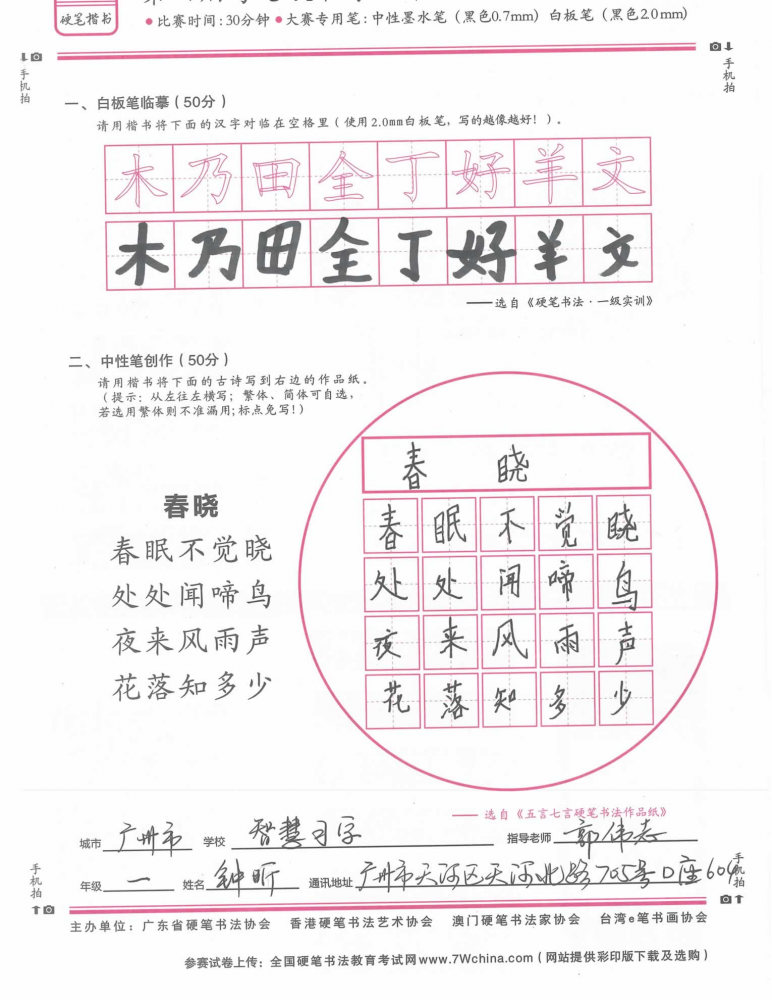 硬笔楷书
● 比赛时间:30分钟 ● 大赛专用笔:中性墨水笔（黑色0.7mm）白板笔（黑色2.0mm）
手机拍
手机拍
一、白板笔临摹（50分）
请用楷书将下面的汉字对临在空格里（使用2.0mm白板笔，写的越像越好！）。
木乃田全丁好羊文
木乃田全丁好羊文
——选自《硬笔书法·一级实训》
二、中性笔创作（50分）
请用楷书将下面的古诗写到右边的作品纸。
（提示：从左往左横写；繁体、简体可自选，
若选用繁体则不准漏用;标点免写!）
春晓
春眠不觉晓
处处闻啼鸟
夜来风雨声
花落知多少
春 晓
春眠不觉晓
处处闻啼鸟
夜来风雨声
花落知多少
——选自《五言七言硬笔书法作品纸》
城市 广州市 学校 智慧习字 指导老师 郭伟志
年级 一 姓名 钟昕 通讯地址 广州市天河区天河北路705号D座604
手机拍
手机拍
主办单位：广东省硬笔书法协会 香港硬笔书法艺术协会 澳门硬笔书法家协会 台湾e笔书画协会
参赛试卷上传：全国硬笔书法教育考试网www.7Wchina.com（网站提供彩印版下载及选购）